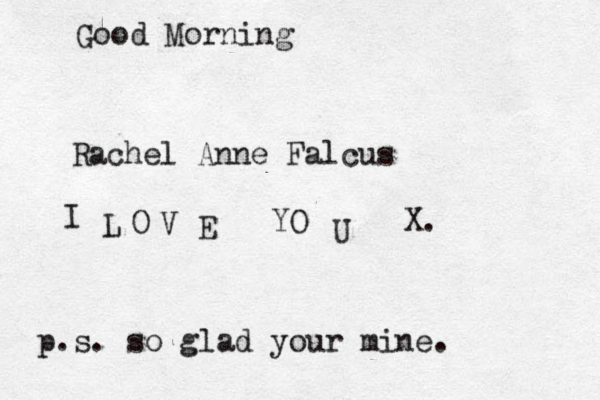 Good Morning
Rachel Anne Falcus
I LOVE YOU X.
p.s. so glad your mine.